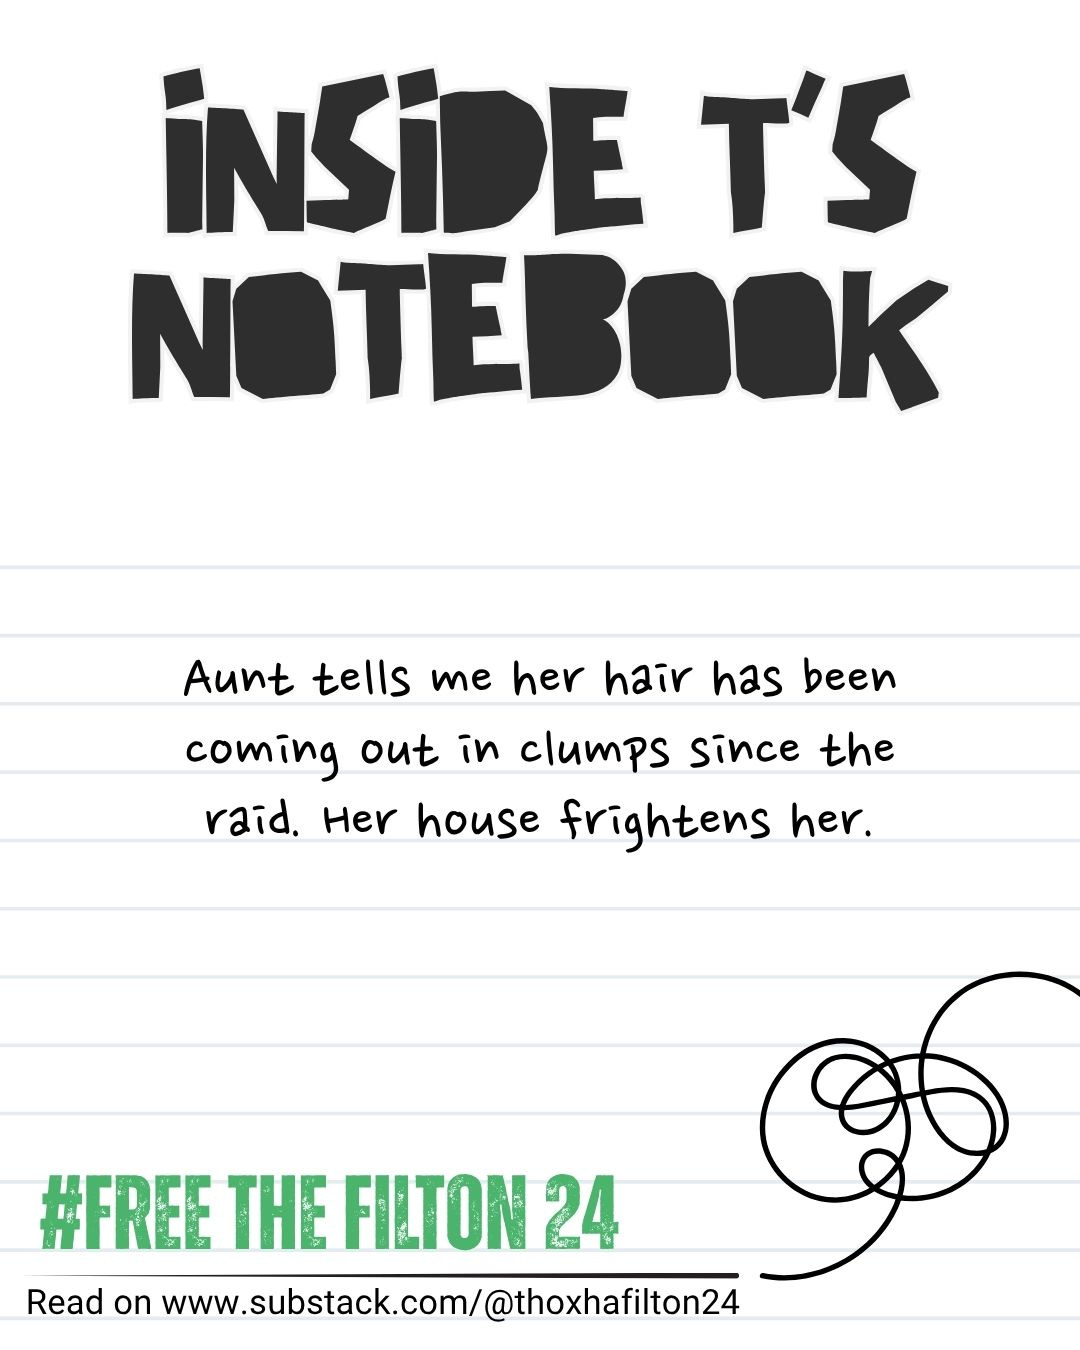 INSIDE T'S
NOTEBOOK
Aunt tells me her hair has been
coming out in clumps since the
raid. Her house frightens her.
#FREE THE FILTON 24
Read on www.substack.com/@thoxhafilton24